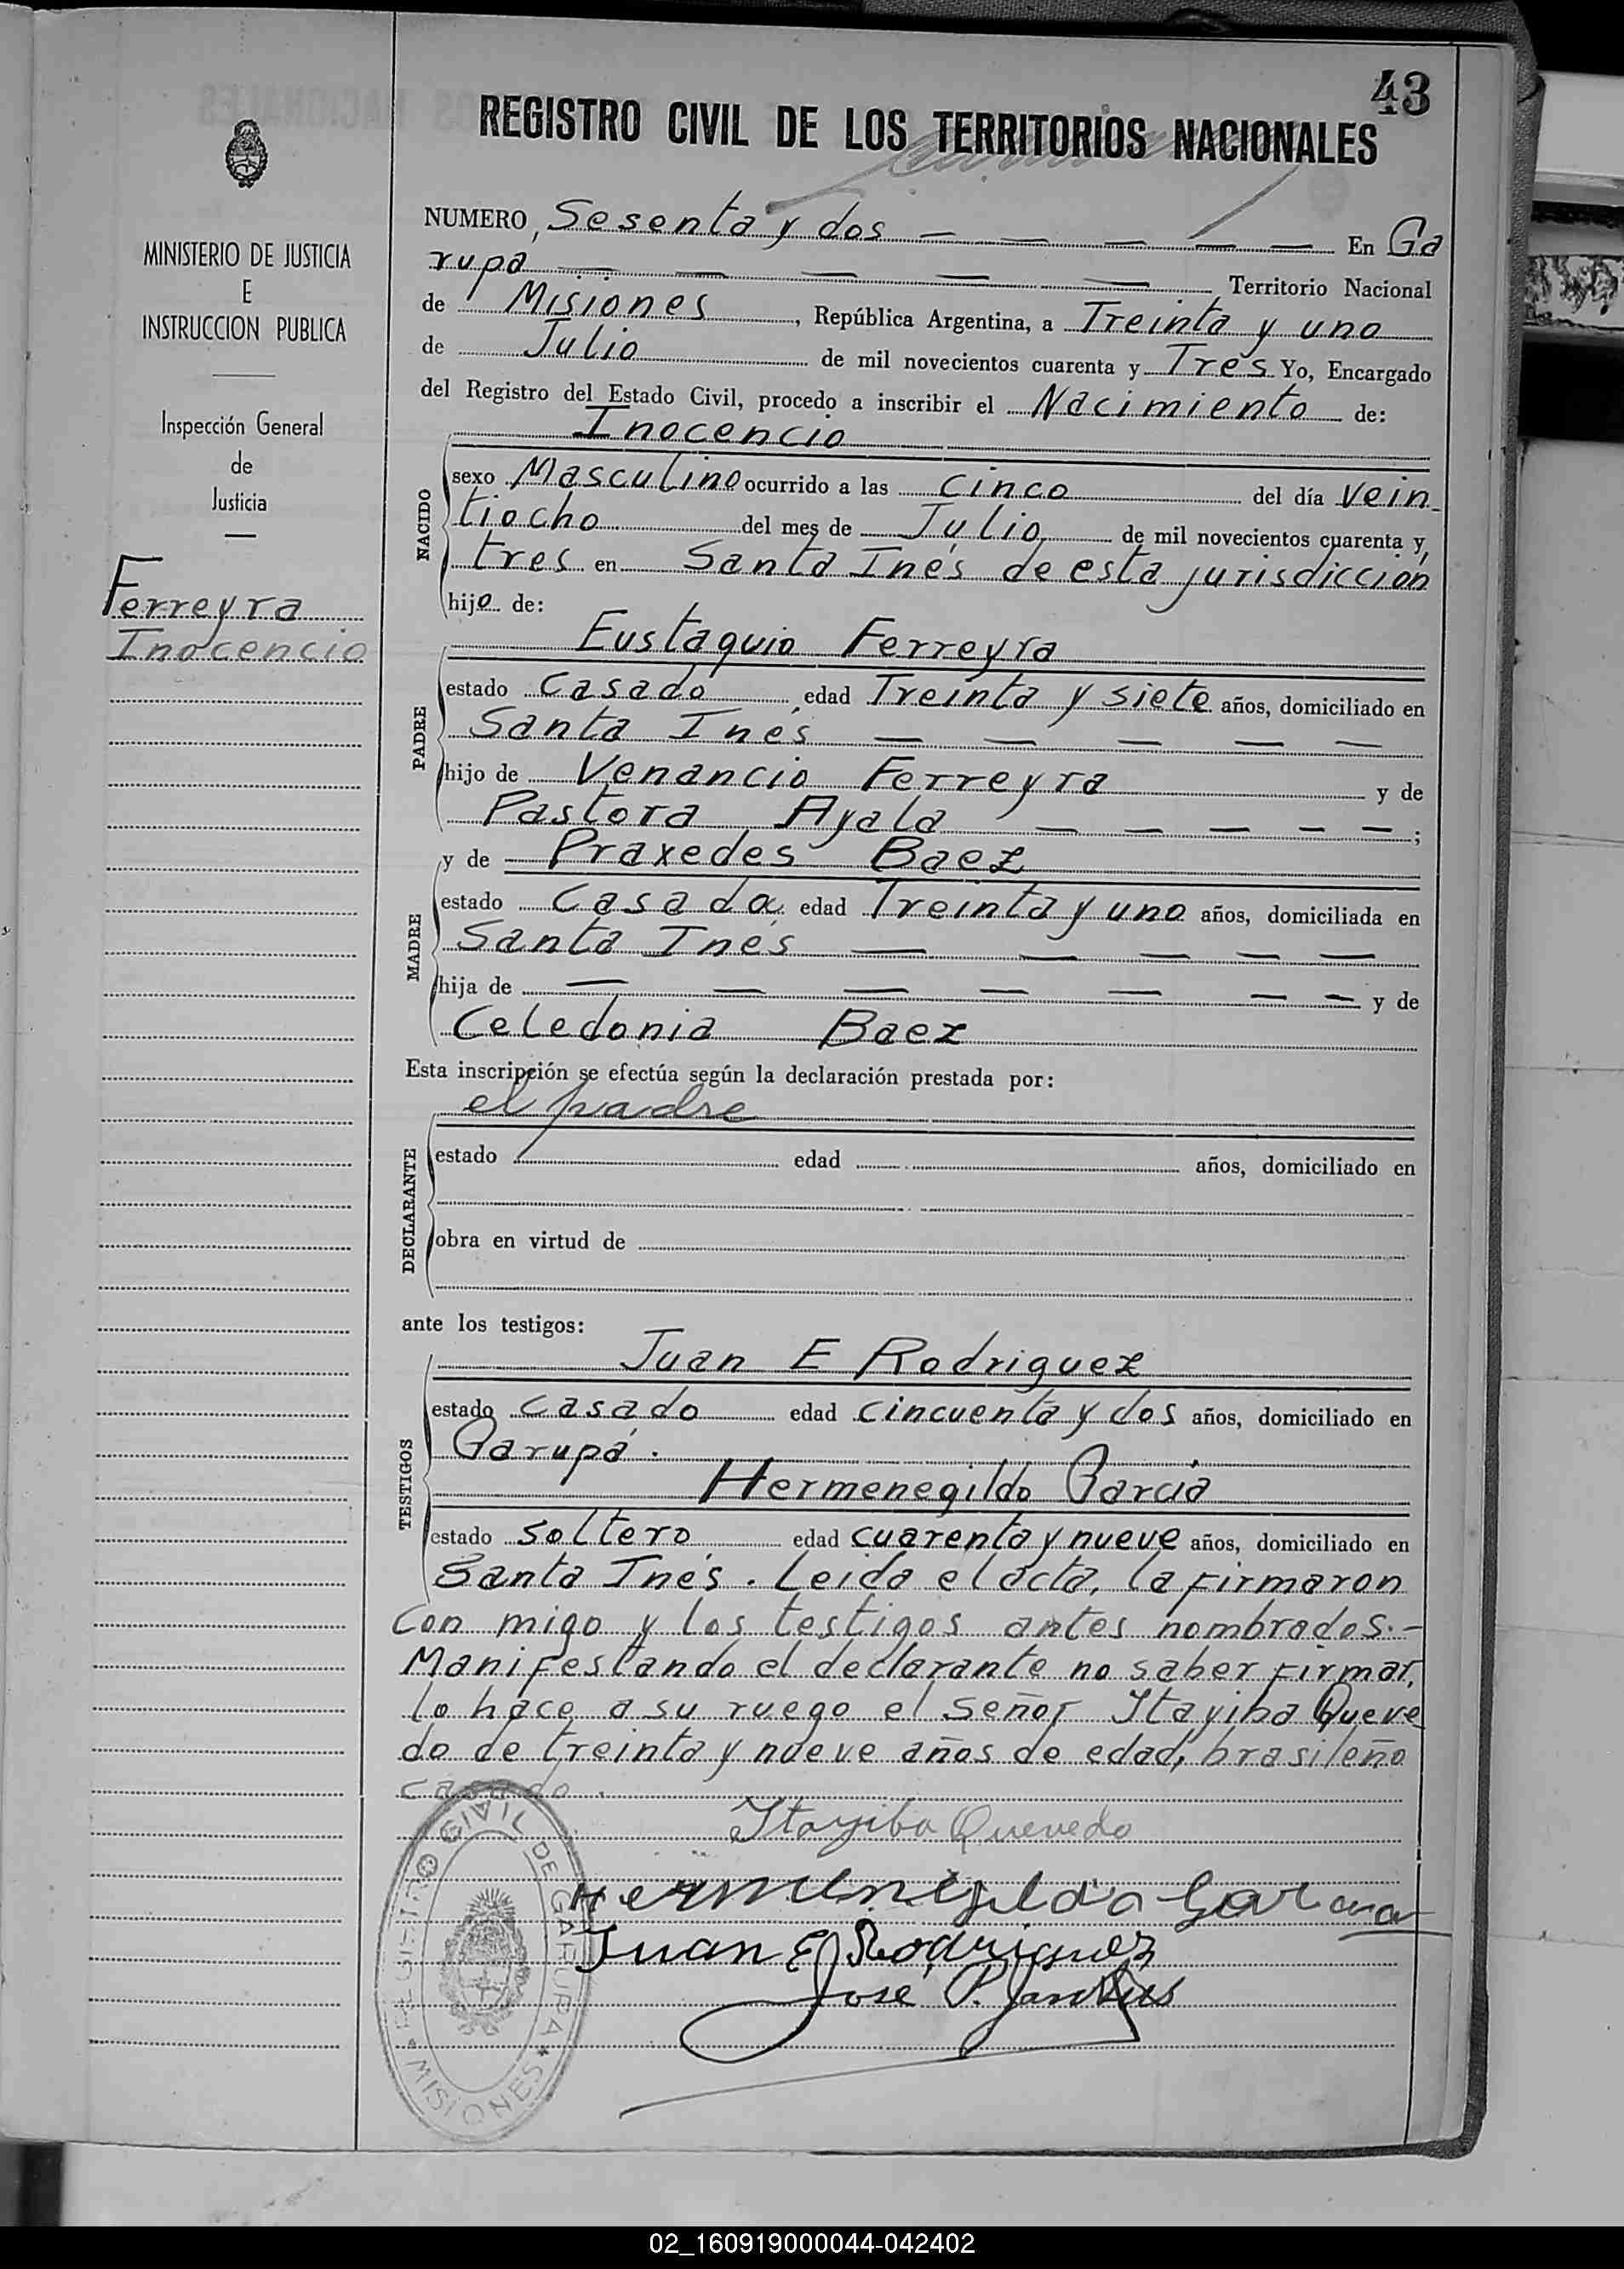 43
REGISTRO CIVIL DE LOS TERRITORIOS NACIONALES
MINISTERIO DE JUSTICIA
E
INSTRUCCION PUBLICA
Inspección General
de
Justicia
Ferreyra
Inocencio
NUMERO, Sesenta y dos — — — — — En Ga
rupá — — — — — Territorio Nacional
de Misiones, República Argentina, a Treinta y uno
de Julio de mil novecientos cuarenta y Tres Yo, Encargado
del Registro del Estado Civil, procedo a inscribir el Nacimiento de:
Inocencio
NACIDO
sexo Masculino ocurrido a las cinco del día vein
tiocho del mes de Julio de mil novecientos cuarenta y
tres en Santa Inés de esta jurisdicción
hijo de:
Eustaquio Ferreyra
PADRE
estado Casado, edad Treinta y siete años, domiciliado en
Santa Inés — — — — —
hijo de Venancio Ferreyra y de
Pastora Ayala — — — — — ;
y de Praxedes Baez
MADRE
estado Casada, edad Treinta y uno años, domiciliada en
Santa Inés — — — — —
hija de — — — — — — — y de
Celedonia Baez
Esta inscripción se efectúa según la declaración prestada por:
el padre
DECLARANTE
estado edad años, domiciliado en
obra en virtud de
ante los testigos:
Juan E Rodriguez
TESTIGOS
estado Casado edad cincuenta y dos años, domiciliado en
Garupá.
Hermenegildo García
estado soltero edad cuarenta y nueve años, domiciliado en
Santa Inés. Leida el acta, la firmaron
con migo y los testigos antes nombrados.-
Manifestando el declarante no saber firmar,
lo hace a su ruego el señor Itayiba Queve
do de treinta y nueve años de edad, brasileño
casado.
Itayiba Quevedo
Hermenegildo Garcia
Juan E Rodriguez
José P.
REGISTRO CIVIL DE GARUPA
* MISIONES *
02_160919000044-042402